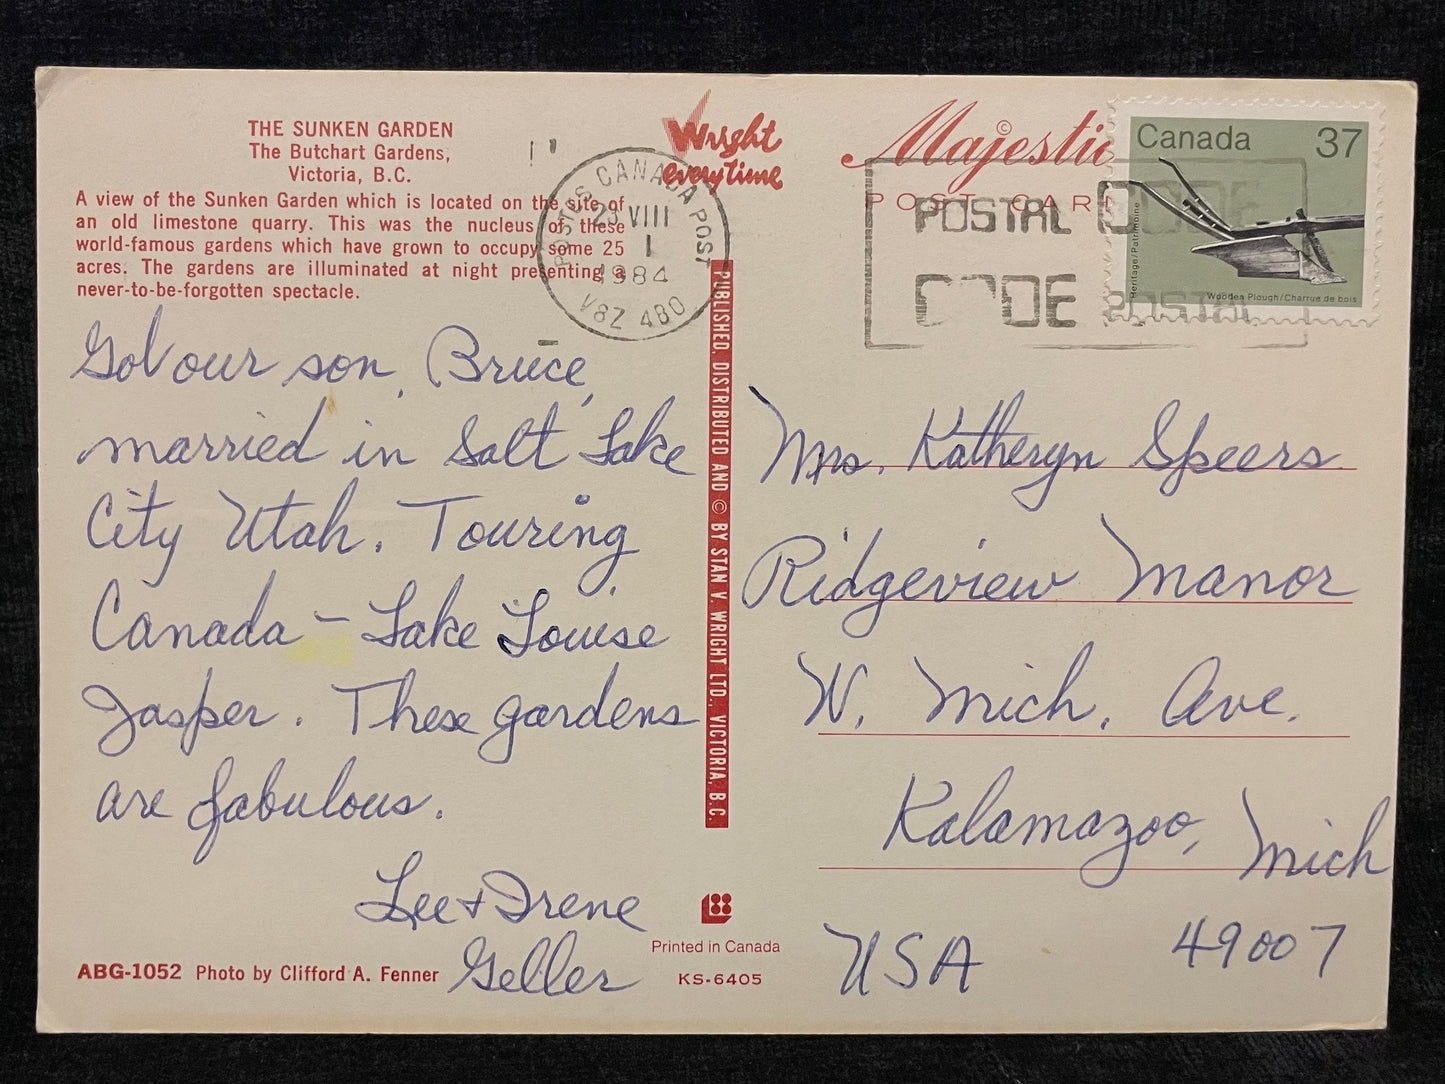 THE SUNKEN GARDEN
The Butchart Gardens,
Victoria, B.C.
A view of the Sunken Garden which is located on the site of
an old limestone quarry. This was the nucleus of these
world-famous gardens which have grown to occupy some 25
acres. The gardens are illuminated at night presenting a
never-to-be-forgotten spectacle.
Got our son, Bruce,
married in Salt Lake
City Utah. Touring
Canada - Lake Louise
Jasper. These gardens
are fabulous.
Lee + Irene
Geller
ABG-1052 Photo by Clifford A. Fenner
Wright
everytime
POSTES CANADA POST
29 VIII
1
1984
V8Z 4B0
PUBLISHED, DISTRIBUTED AND © BY STAN V. WRIGHT LTD., VICTORIA, B.C.
Printed in Canada
KS-6405
Majestic
©
POST CARD
POSTAL CODE
CODE POSTAL
Canada 37
Heritage/Patrimoine
Wooden Plough/Charrue de bois
Mrs. Katheryn Speers
Ridgeview Manor
W. Mich. Ave.
Kalamazoo, Mich
USA 49007